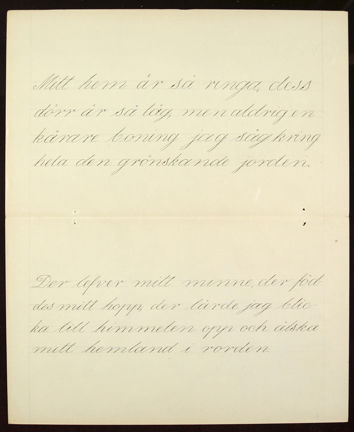 Mitt hem är så ringa, dess
dörr är så låg, men aldrig en
kärare boning jag såg kring
hela den grönskande jorden.
Der lefver mitt minne, der föd
des mitt hopp, der lärde jag blic-
ka till himmelen opp och älska
mitt hemland i norden.